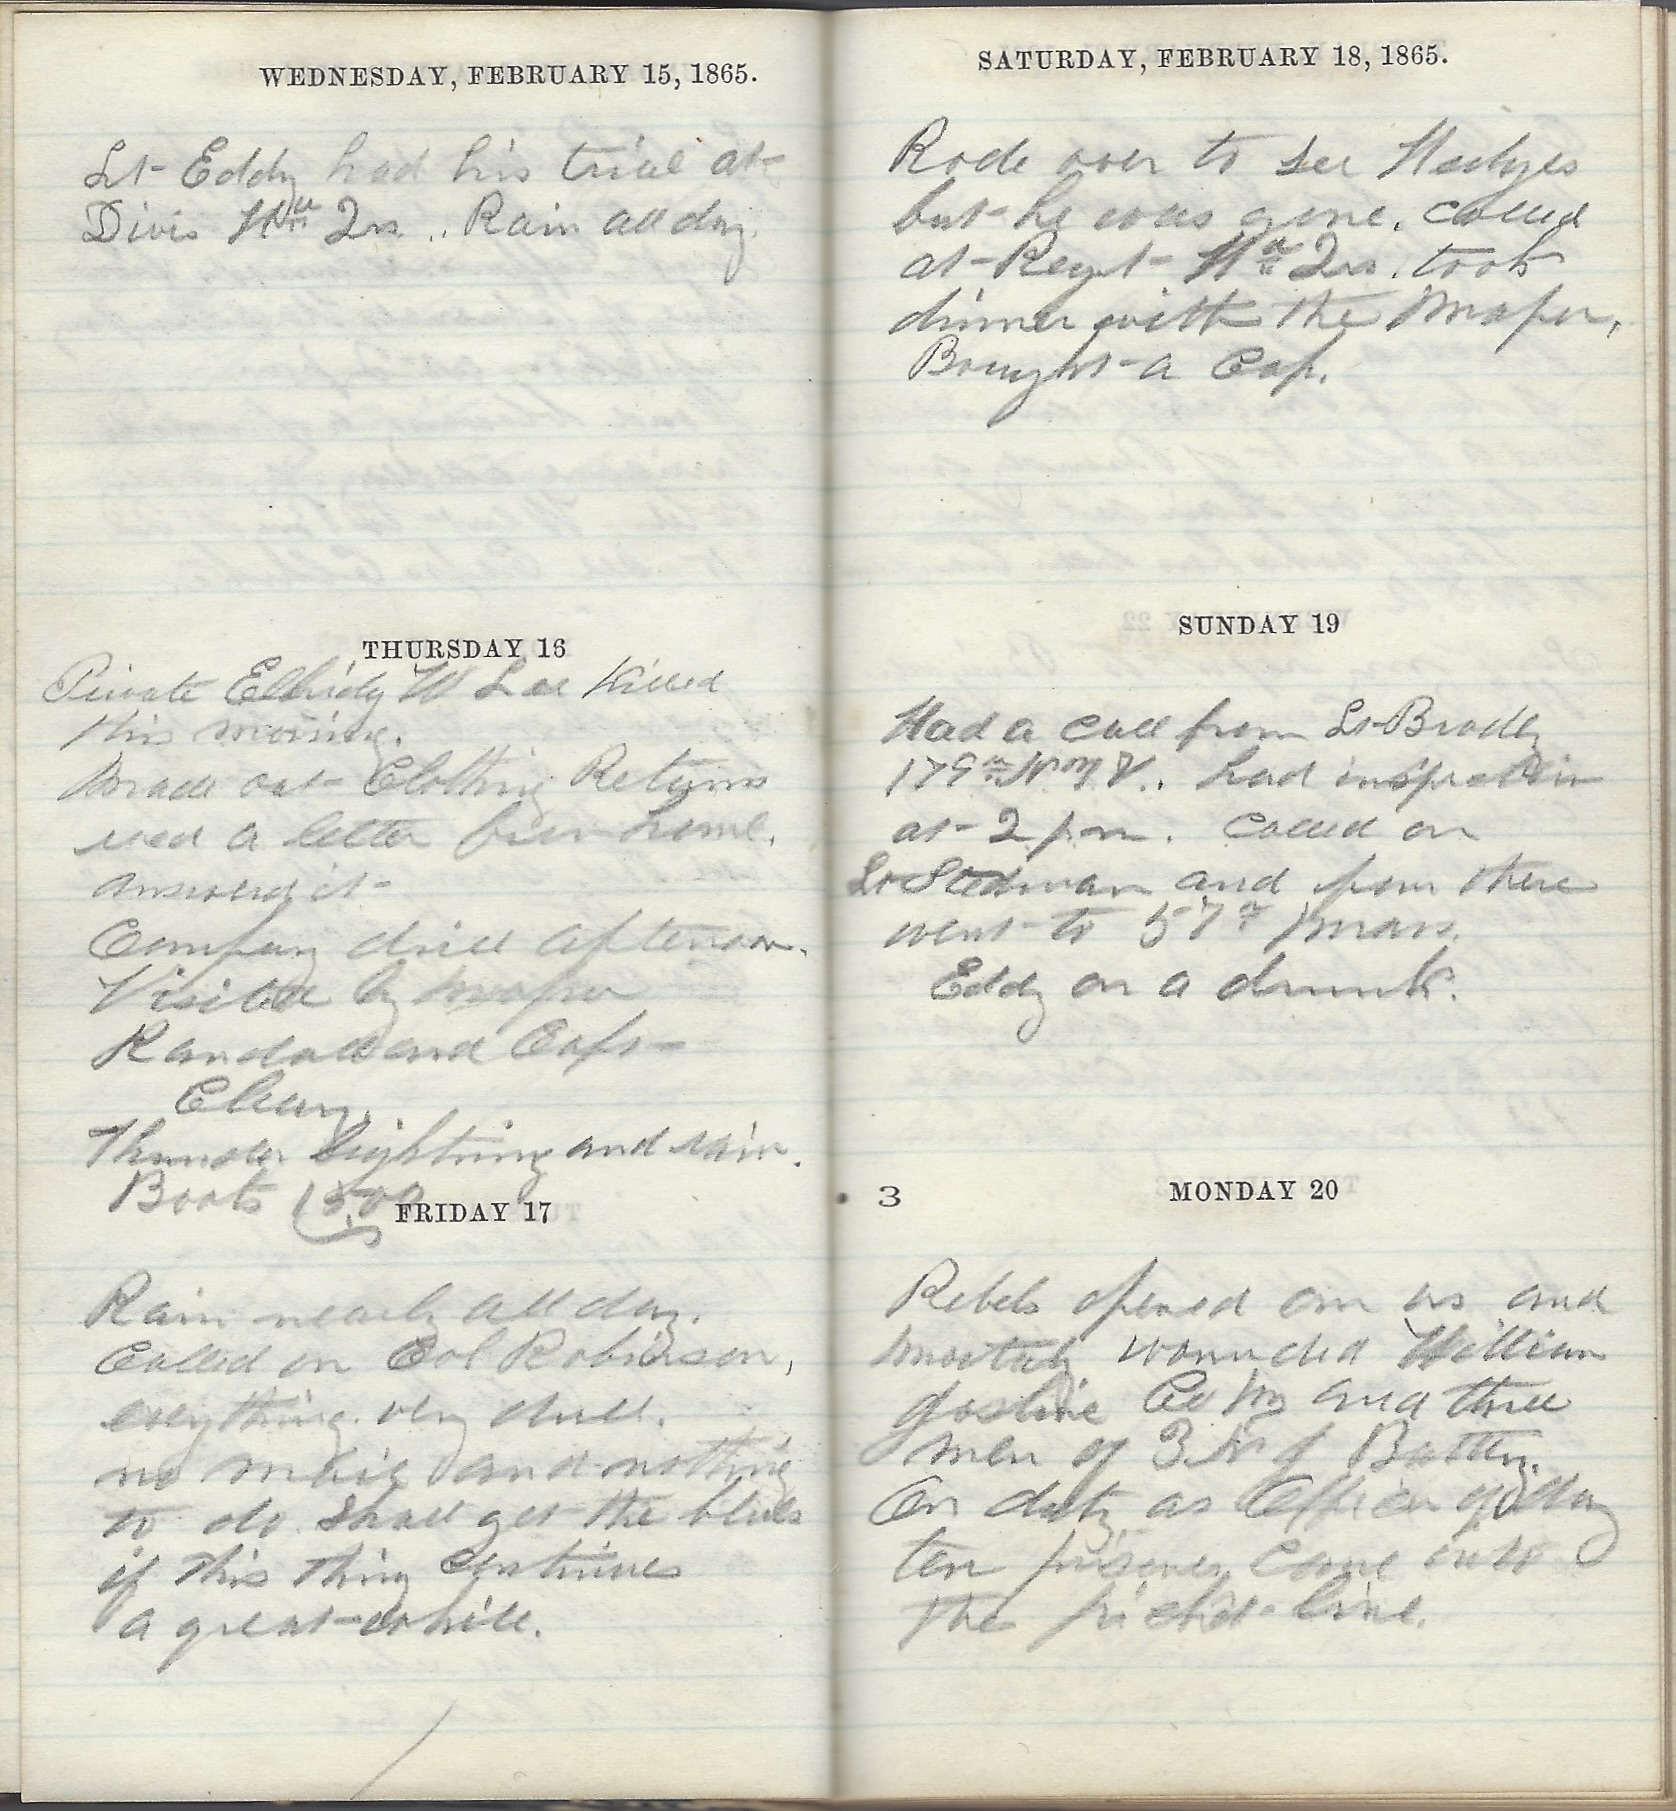 WEDNESDAY, FEBRUARY 15, 1865.
Lt Eddy had his trial at
Divis Hd Qrs.. Rain all day.
THURSDAY 16
Private Elbridg W Lee Killed
this morning.
Made out Clothing Returns
recd a letter from home.
answerd it
Company drill afternoon.
Visited by Major
Randall and Capt
Cleary.
Thunder lightning and rain.
Boots 15.00
FRIDAY 17
Rain nearly all day.
Called on Col Robinson,
everything very dull.
no and nothing
to do. Shall get the blues
if this thing continues
a great while.
SATURDAY, FEBRUARY 18, 1865.
Rode over to see Hedges
but he was gone. Called
at Regt Hd Qrs. took
dinner with the Major,
Bought a Cap.
SUNDAY 19
Had a call from Lt Brady
179th N.Y.V.. had inspection
at 2 p.m. Called on
Lt Stedman and from there
went to 57th Mass.
Eddy on a drunk.
3
MONDAY 20
Rebels opened on us and
mortaly wounded William
Gosline Co M and three
men of 3 N J Battery.
On duty as Officer of day
ten prisoners came into
the picket line.